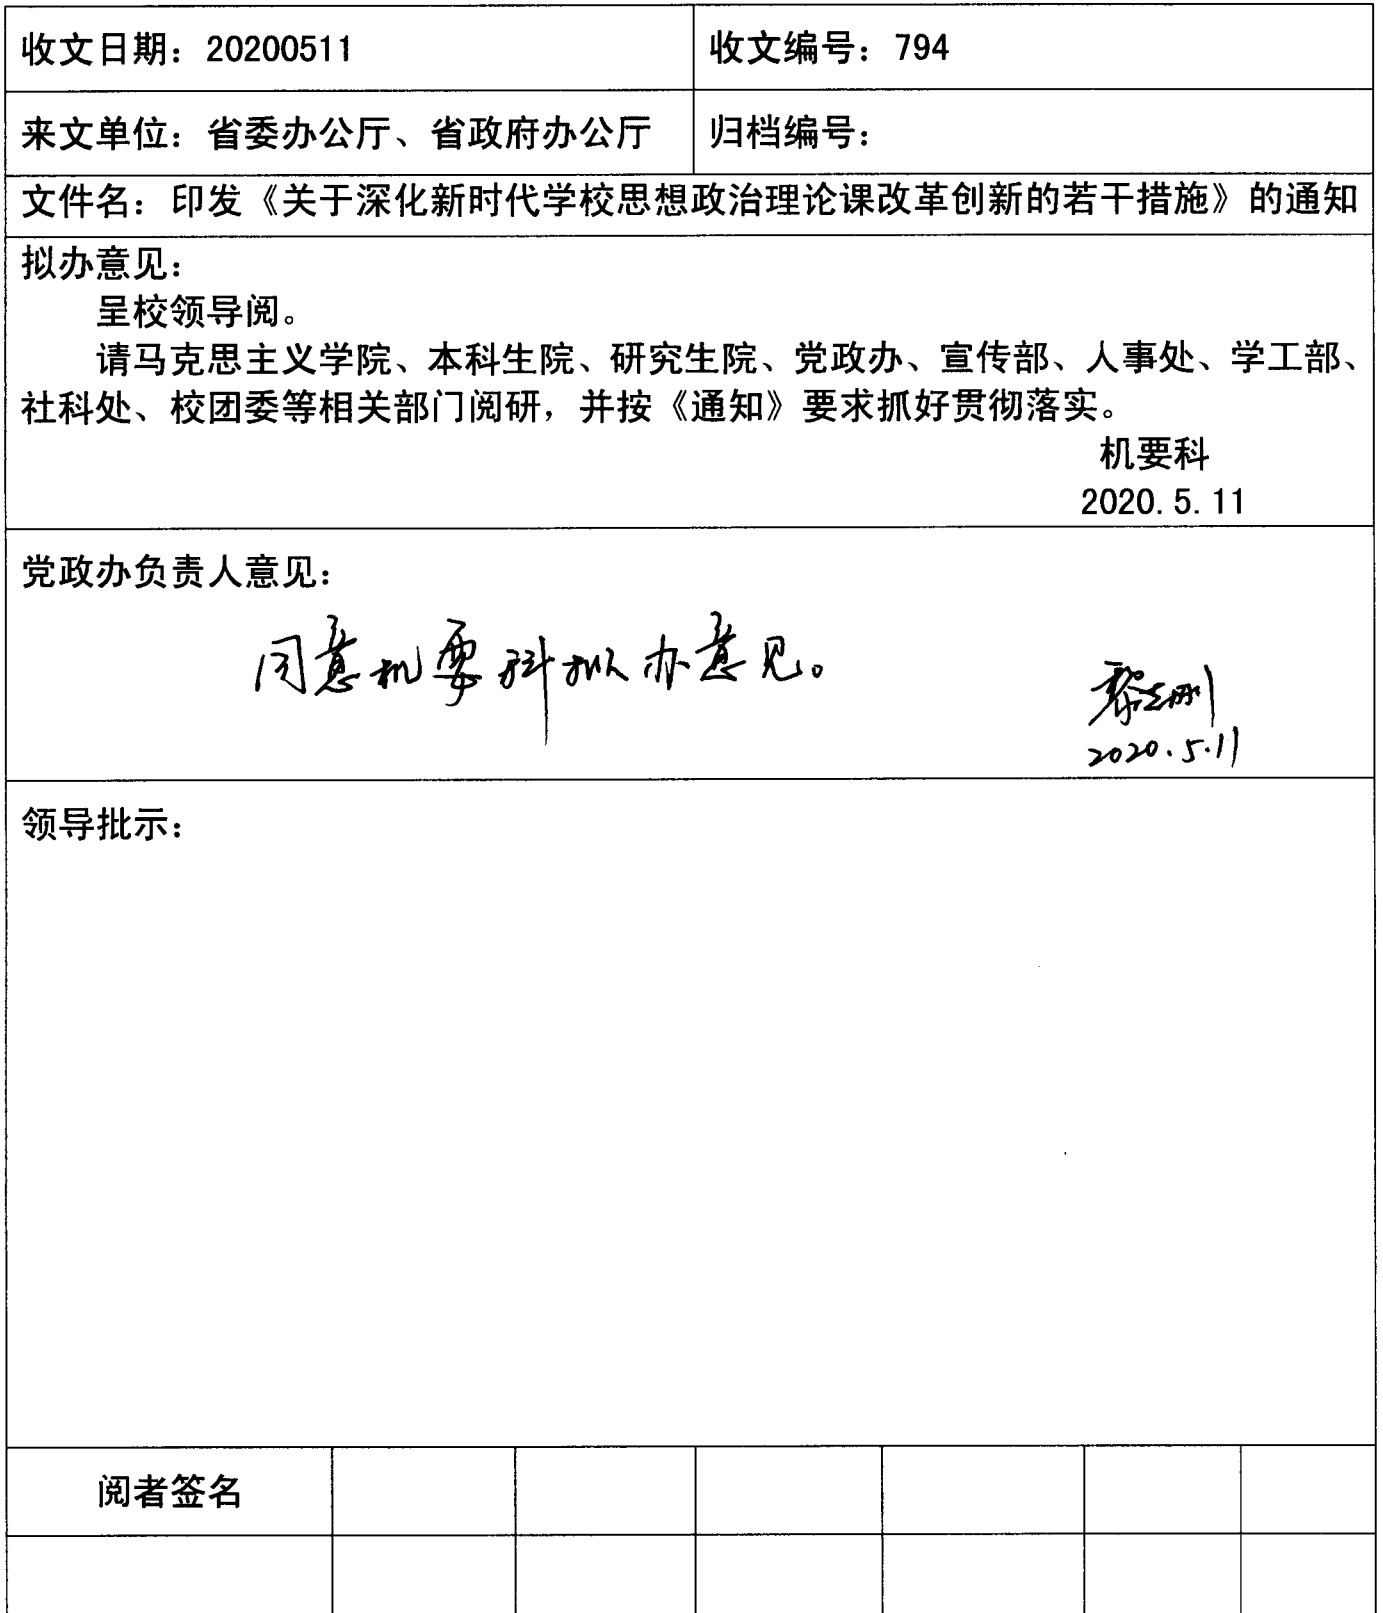 收文日期：20200511
收文编号：794
来文单位：省委办公厅、省政府办公厅
归档编号：
文件名：印发《关于深化新时代学校思想政治理论课改革创新的若干措施》的通知
拟办意见：
呈校领导阅。
请马克思主义学院、本科生院、研究生院、党政办、宣传部、人事处、学工部、
社科处、校团委等相关部门阅研，并按《通知》要求抓好贯彻落实。
机要科
2020.5.11
党政办负责人意见：
同意机要科拟办意见。
2020.5.11
领导批示：
阅者签名